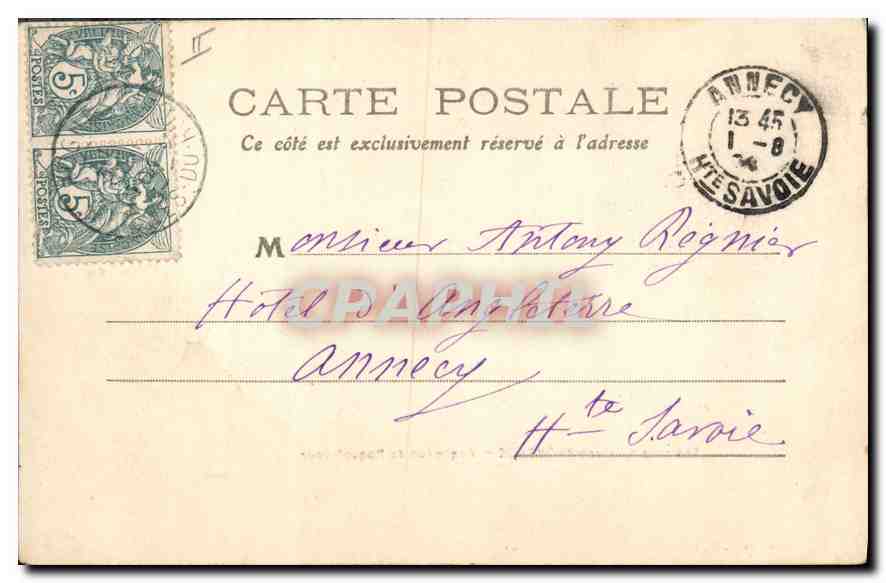 II
5c
POSTES
5c
POSTES
CARTE POSTALE
Ce côté est exclusivement réservé à l'adresse
ANNECY
13 45
1 - 8
Hte SAVOIE
Monsieur Antony Régnier
Hôtel d'Angleterre
CPAPHIL
Annecy
Hte Savoie